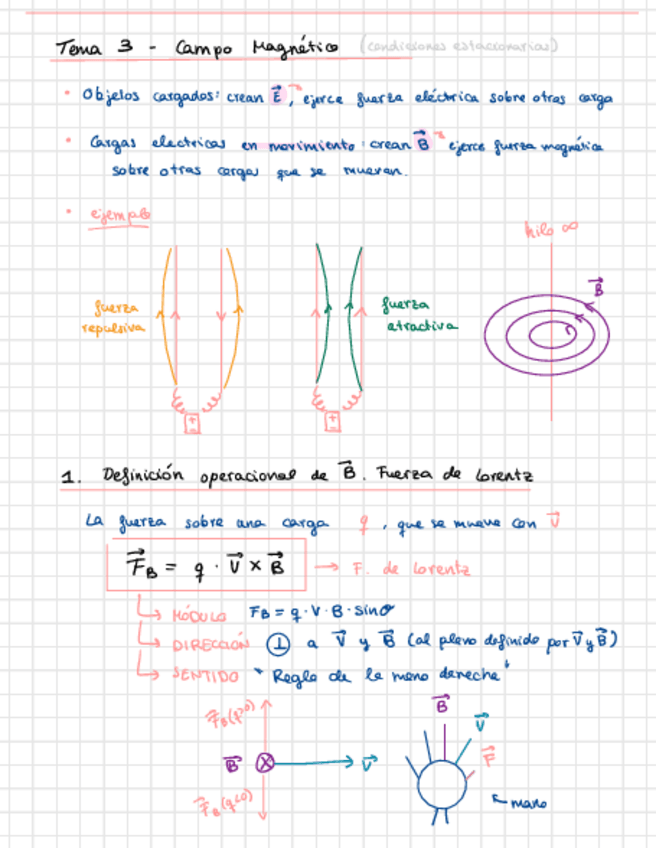 Tema 3 - Campo Magnético (condiciones estacionarias)
• Objetos cargados: crean E⃗, ejerce fuerza eléctrica sobre otras carga
• Cargas electricas en movimiento: crean B⃗ ejerce fuerza magnética
sobre otras cargas que se muevan.
• ejemplo
hilo ∞
B⃗
fuerza
repulsiva
fuerza
atractiva
1. Definición operacional de B⃗. Fuerza de Lorentz
La fuerza sobre una carga q, que se mueve con v⃗
F⃗B = q · v⃗ × B⃗ → F. de Lorentz
↳ MÓDULO FB = q · v · B · sinθ
↳ DIRECCIÓN ⊥ a v⃗ y B⃗ (al plano definido por v⃗ y B⃗)
↳ SENTIDO "Regla de la mano derecha"
F⃗B(q>0)
B⃗ ⊗ v⃗
F⃗B(q<0)
B⃗
v⃗
F⃗
← mano